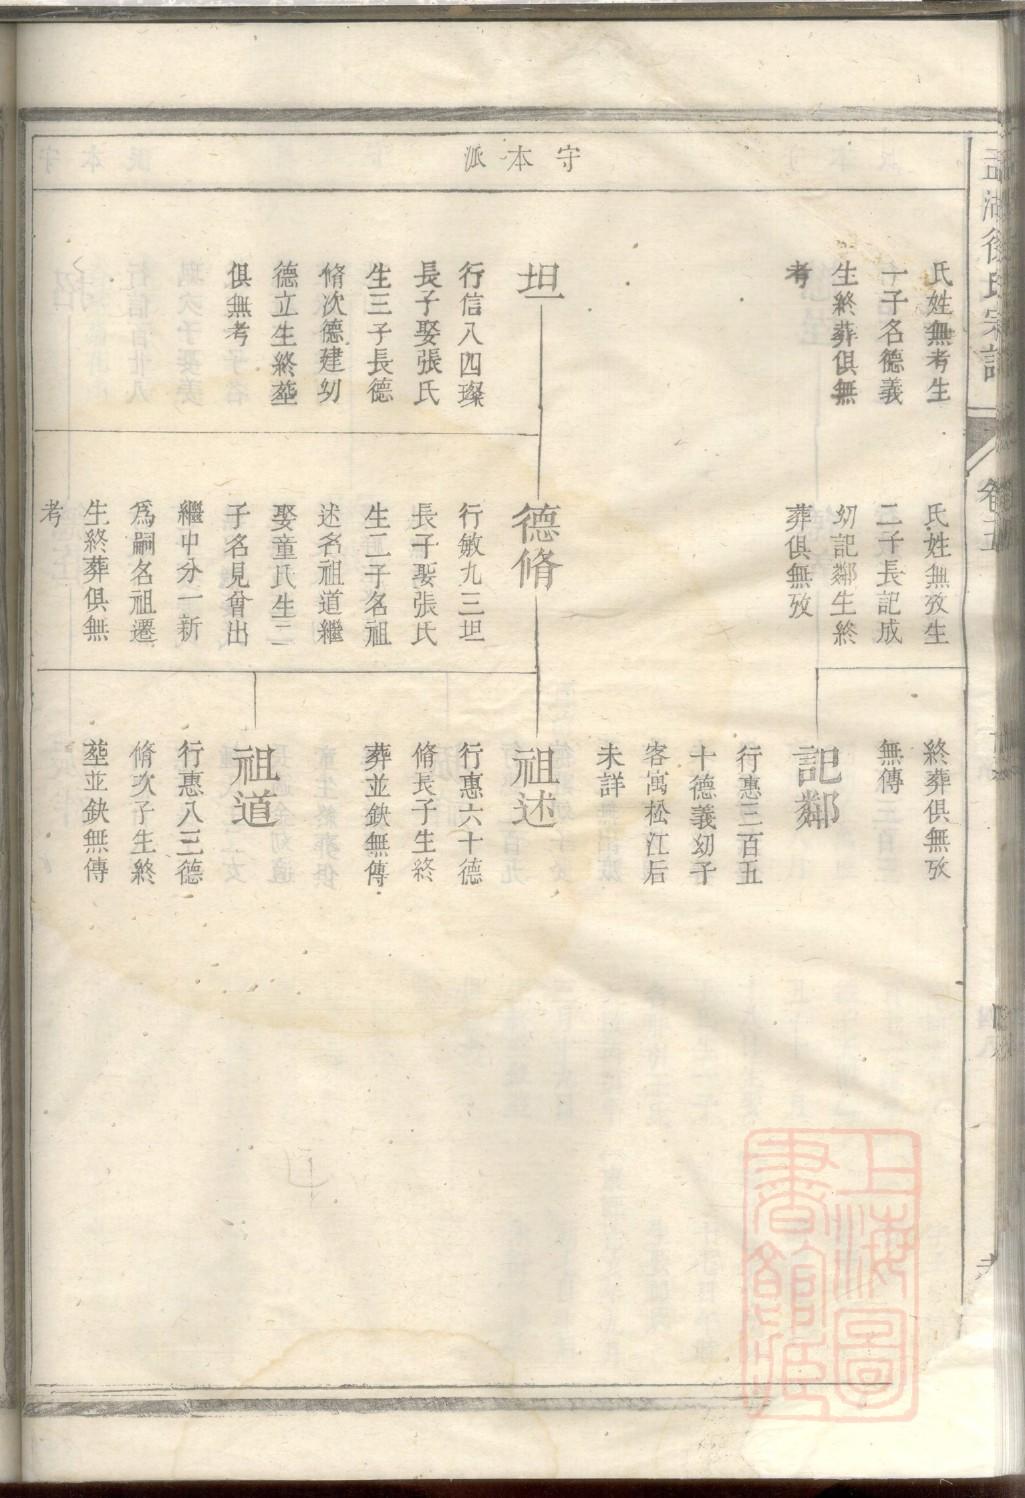 守本派
氏姓無考生
一子名德義
生終葬俱無
考
坦
行信八四璨
長子娶張氏
生三子長德
脩次德建幼
德立生終塟
俱無考
氏姓無攷生
二子長記成
幼記鄰生終
葬俱無攷
德脩
行敏九三坦
長子娶張氏
生二子名祖
述名祖道繼
娶童氏生二
子名見曾出
繼中分一新
爲嗣名祖遷
生終葬俱無
考
終葬俱無攷
無傳
記鄰
行惠三百五
十德義幼子
客寓松江后
未詳
祖述
行惠六十德
脩長子生終
葬並缺無傳
祖道
行惠八三德
脩次子生終
塟並缺無傳
上海圖
書館藏